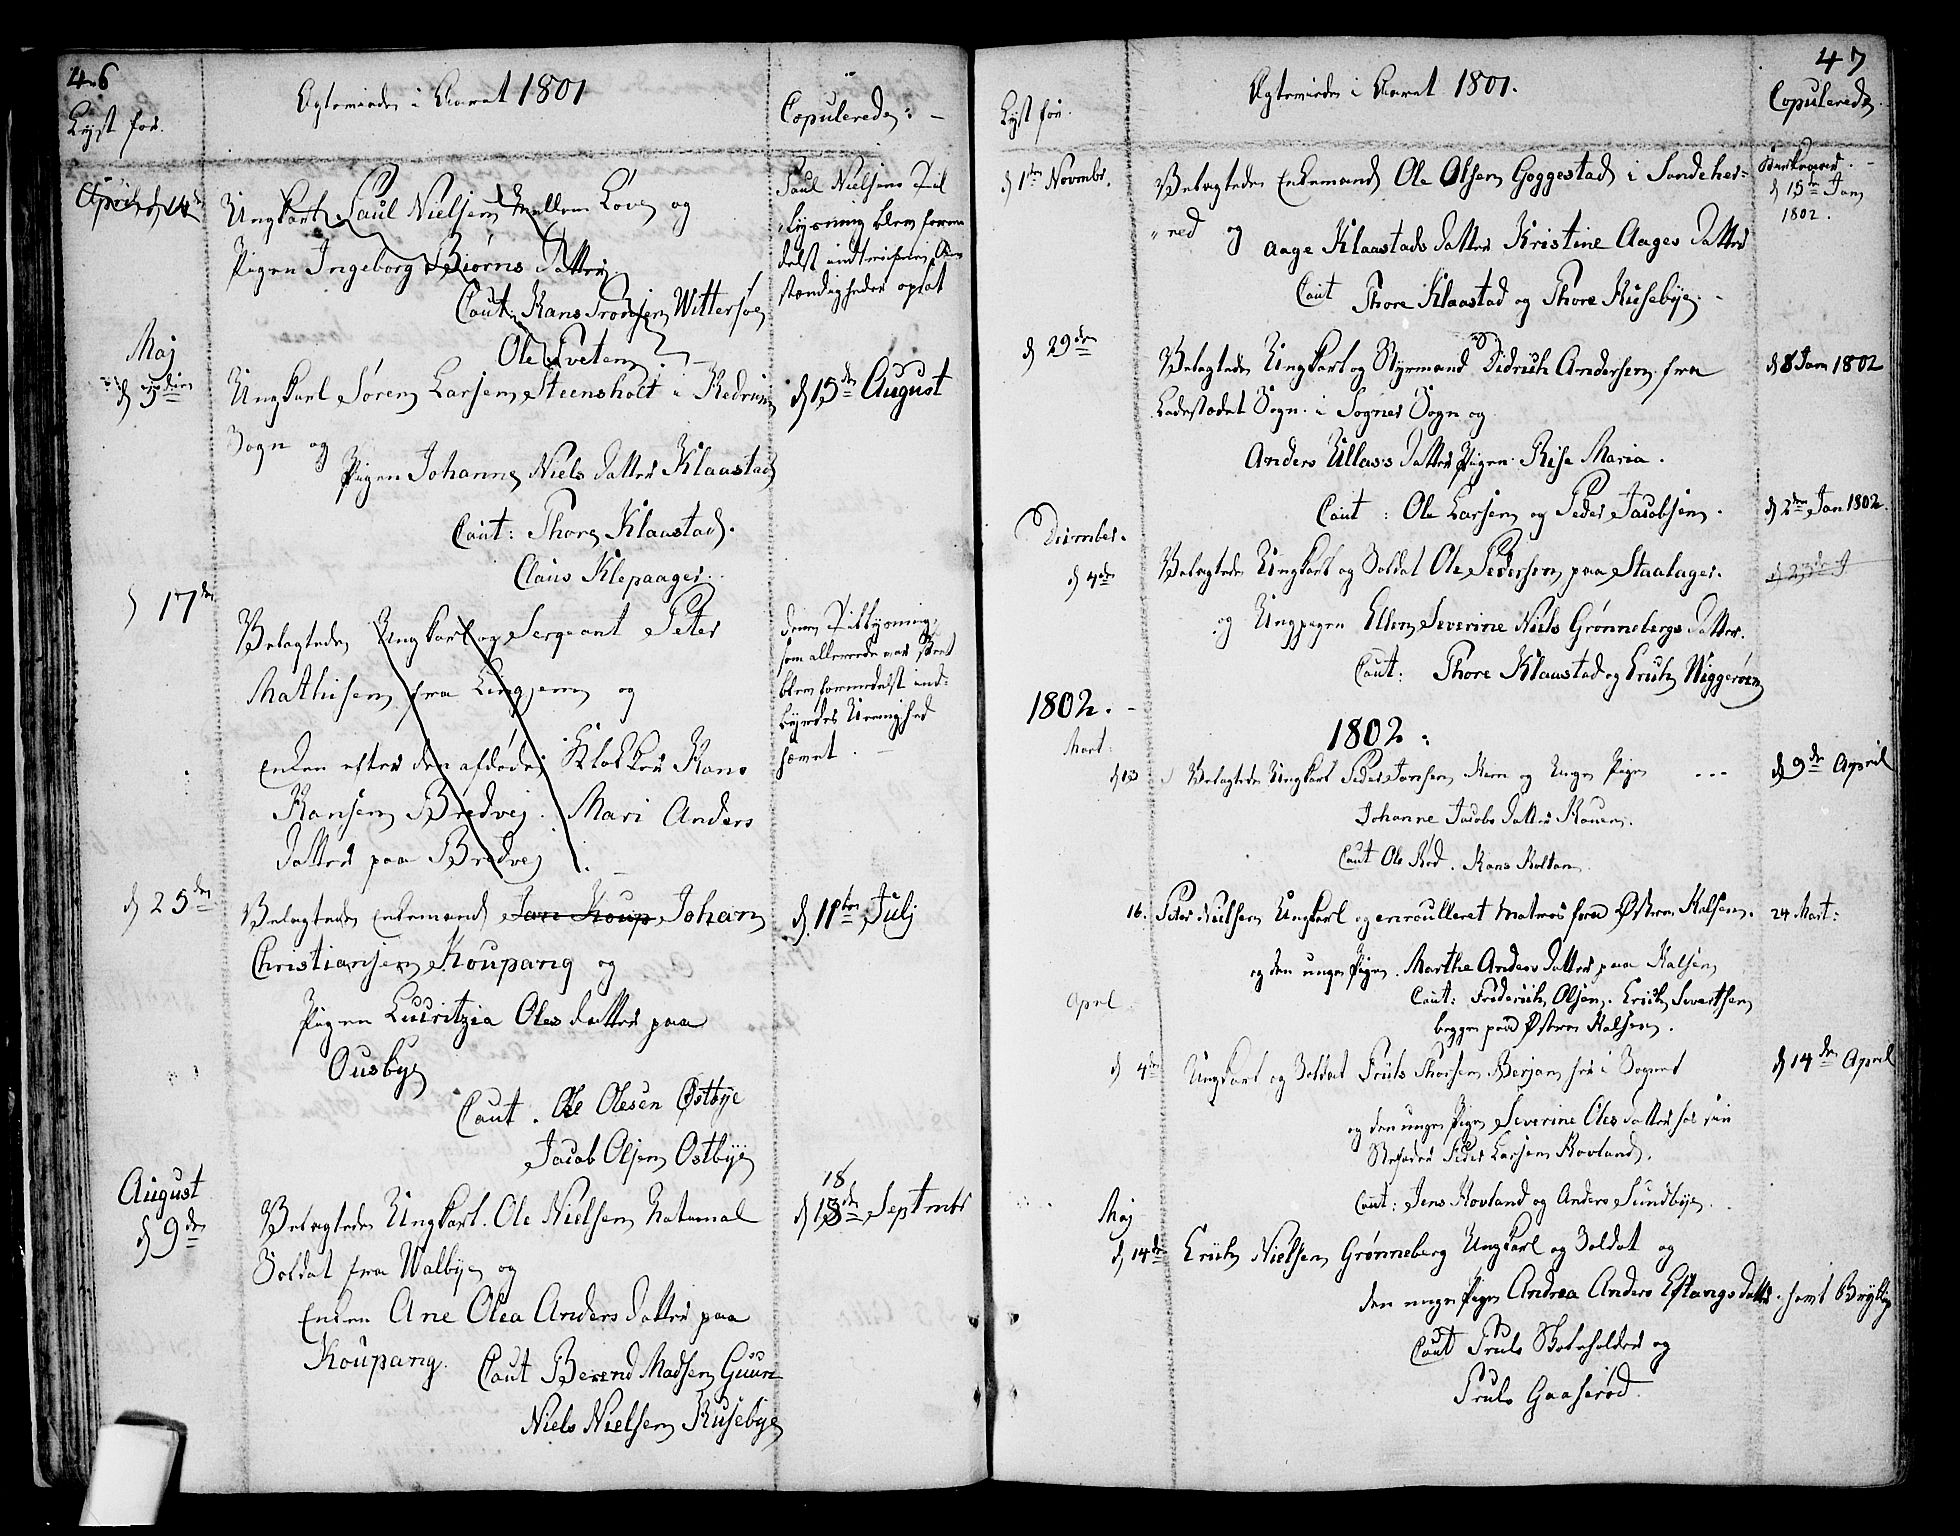 46
Lyst for.
Egtevirde i Aaret 1801
Copulerede: -
April d 14de
Ungkarl Paul Nielsen Mellem Love og
Pigen Ingeborg Biørns Datter
Caut: Hans Trondsen Wittersøe
Ole Tveten
Paul Nielsens Til
lysning blev forme
delst indtrufne Om
stændigheder opsat
Maj
d 5te
Ungkarl Søren Larsen Steensholt i Hedrum
Sogn og
Pigen Johanne Niels Datter Klaastad
Caut: Thore Klaastad.
Claus Klepaager.
d 15de August
d 17de
Velagtede Ungkarl og Sergeant Peter
Mathisen fra og
Enken efter den afdøde Klokker Hans
Hansen Bredvej. Mari Anders
Datter paa Bredvej
denne Tillysning,
som allerede var skeet
blev formedelst ind-
byrdes Uenighed
hævet.
d 25de
Velagtede Enkemand Jan Koup Johan
Christiansen Koupang og
Pigen Lucritzia Oles Datter paa
Ousbye
Caut. Ole Olesen Østbye
Jacob Olsen Ostbye
d. 11te Julj
August
d 9de
Velagtede Ungkarl. Ole Nielsen National
Soldat fra Walbye og
Enken Ane Olea Anders Datter paa
Koupang. Caut Berend Madsen Guure
Niels Nielsen Husebye
18
d 13de Septembr
47
Lyst for.
Egtevirde i Aaret 1801.
Copulerede
d 1te Novembr.
Velagtede Enkemand Ole Olsen Goggestad i Sandeher-
red og Aage Klaastads Datter Kristine Aages Datter
Caut Thore Klaastad og Thore Husebye.
d 15de Jan
1802.
d 29de
Velagtede Ungkarl og Styrmand Didrich Andersen fra
Ladestædet Sogn i Sogner Sogn og
Anders Ullass Datter Pigen Else Maria.
Caut: Ole Larsen og Peder Jacobsen.
d 8 Jan 1802
December.
d 4de
Velagtede Ungkarl og Soldat Ole Pedersen paa Staalager.
og Ungpigen Ellen Severine Niels Grønnebergs Datter.
Caut: Thore Klaastad og Erich Wiggerøen
d 2den Jan 1802.
1802.
Mart:
1802:
d 13
Velagtede Ungkarl Peder Jansen Ham og Unge Pige ---
Johanne Jacobs Datter Kauen.
Caut Ole Rød. Hans Holtan
d 9de April
16.
Peter Nielsen Ungkarl og enroulleret Matros fra Østre Halsen.
og den unge Pige. Marthe Anders Datter paa Halsen
Caut: Friderich Olsen. Erich Sivertsen
begge paa Østre Halsen.
24 Mart:
Aprl.
d 4de
Ungkarl og Soldat Truls Thorsen Berjan her i Sognet
og den unge Pige Severine Oles Datter hos sin
Stifader Peder Larsen Hovland.
Caut: Jens Hovland og Anders Sundbye.
d 14de April
Maj
d 14de
Erich Nielsen Grønneberg Ungkarl og Soldat og
den unge Pige Andrea Anders Eftangs Datter.
Caut Truls Skoeholder og
Truls Gaaserød.